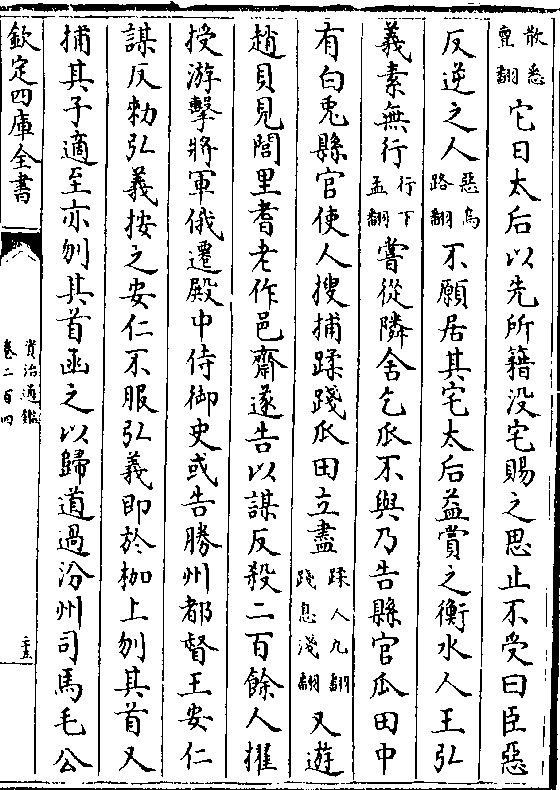 散悉
亶翻
它日太后以先所籍没宅賜之思止不受曰臣惡
反逆之人
惡烏
路翻
不願居其宅太后益賞之衡水人王弘
義素無行
行下
孟翻
嘗從隣舍乞瓜不與乃告縣官瓜田中
有白兎縣官使人搜捕蹂踐瓜田立盡
蹂人九翻
踐息淺翻
又遊
趙貝見閭里耆老作邑齋遂告以謀反殺二百餘人擢
授游擊將軍俄遷殿中侍御史或告勝州都督王安仁
謀反勑弘義按之安仁不服弘義即於枷上刎其首又
捕其子適至亦刎其首函之以歸道過汾州司馬毛公
欽定四庫全書
資治通鑑
卷二百四